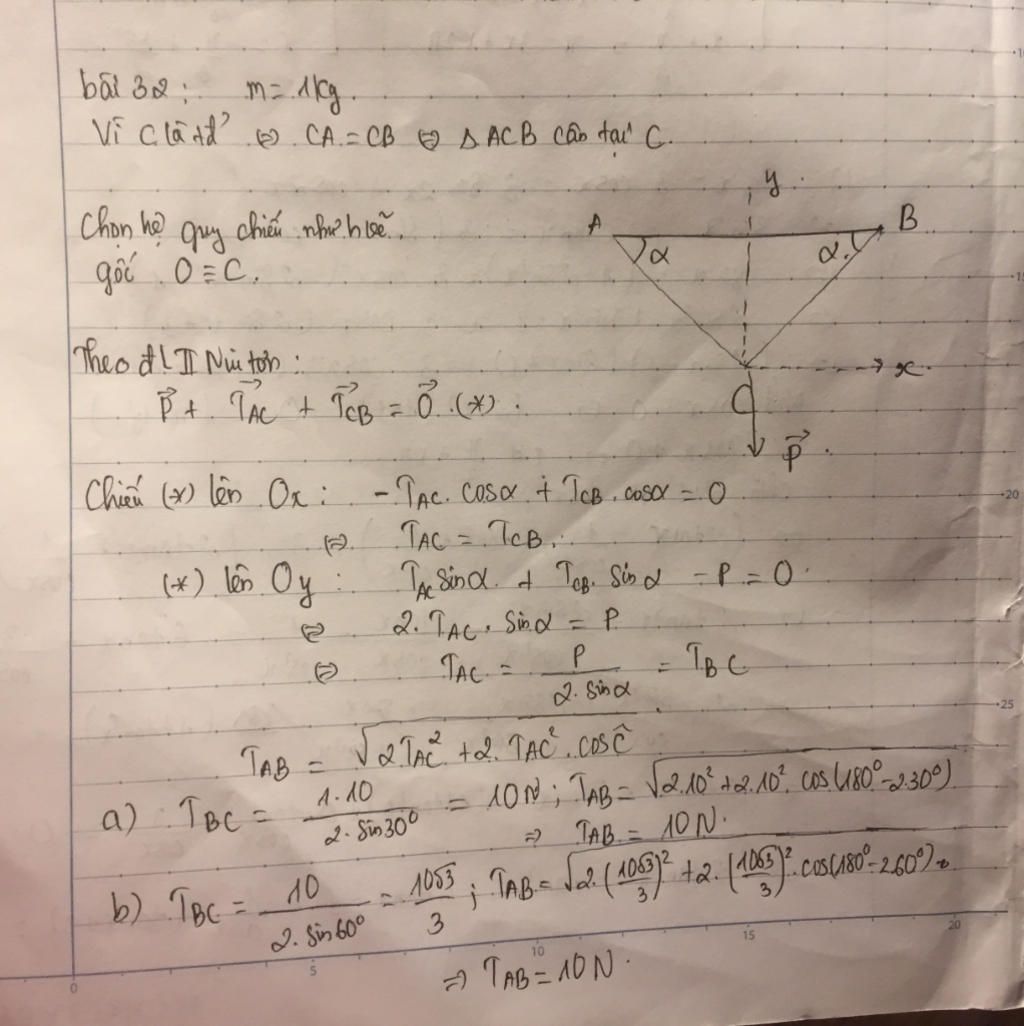 bài 32: m = 1kg.
Vì C là tđ' ⇔ CA = CB ⇔ Δ ACB cân tại C.
y
A α α B
Chọn hệ quy chiếu như h vẽ.
gốc O ≡ C.
x
C
P⃗
Theo đL II Niu tơn:
P⃗ + T⃗AC + T⃗CB = 0⃗ (*).
Chiếu (*) lên Ox: - TAC. cosα + TCB. cosα = 0
⇔ TAC = TCB.
(*) lên Oy: TAC sinα + TCB. sinα - P = 0
⇔ 2. TAC. sinα = P
⇔ TAC = P / (2. sinα) = TBC
TAB = √(2TAC² + 2. TAC². cosĈ)
a) TBC = (1.10) / (2. sin30°) = 10N; TAB = √(2.10² + 2.10². cos(180° - 2.30°))
⇒ TAB = 10N.
b) TBC = 10 / (2. sin60°) = 10√3 / 3; TAB = √(2.(10√3/3)² + 2.(10√3/3)². cos(180° - 2.60°))
⇒ TAB = 10N.
0 5 10 15 20
20
25